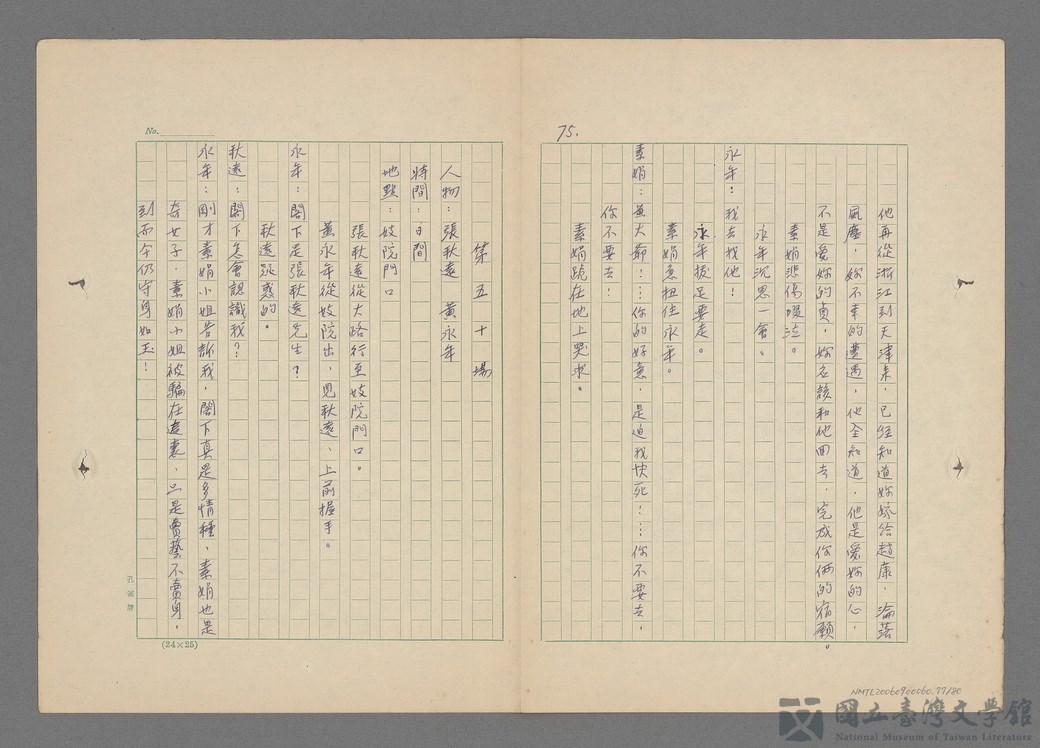 75.
他再從浙江到天津來，已經知道妳嫁給趙康，淪落
風塵，妳不幸的遭遇，他全知道，他是愛妳的心，
不是愛妳的貞，妳應該和他回去，完成你倆的宿願。
素娟悲傷啜泣。
永年沉思一會。
永年：我去找他！
永年拔足要走。
素娟急扭住永年。
素娟：黃大爺！…你的好意，是迫我快死！…你不要去，
你不要去！
素娟跪在地上哭求。
No.
第五十場
人物：張秋遠　黃永年
時間：日間
地點：妓院門口
張秋遠從大路行至妓院門口。
黃永年從妓院出，見秋遠、上前握手。
永年：閣下是張秋遠先生？
秋遠疑惑的。
秋遠：閣下怎會認識我？
永年：剛才素娟小姐告訴我，閣下真是多情種、素娟也是
奇女子，素娟小姐被騙在這裏、只是賣藝不賣身，
到而今仍守身如玉！
(24×25)
NMTL20060900060.77/80
國立臺灣文學館
National Museum of Taiwan Literature